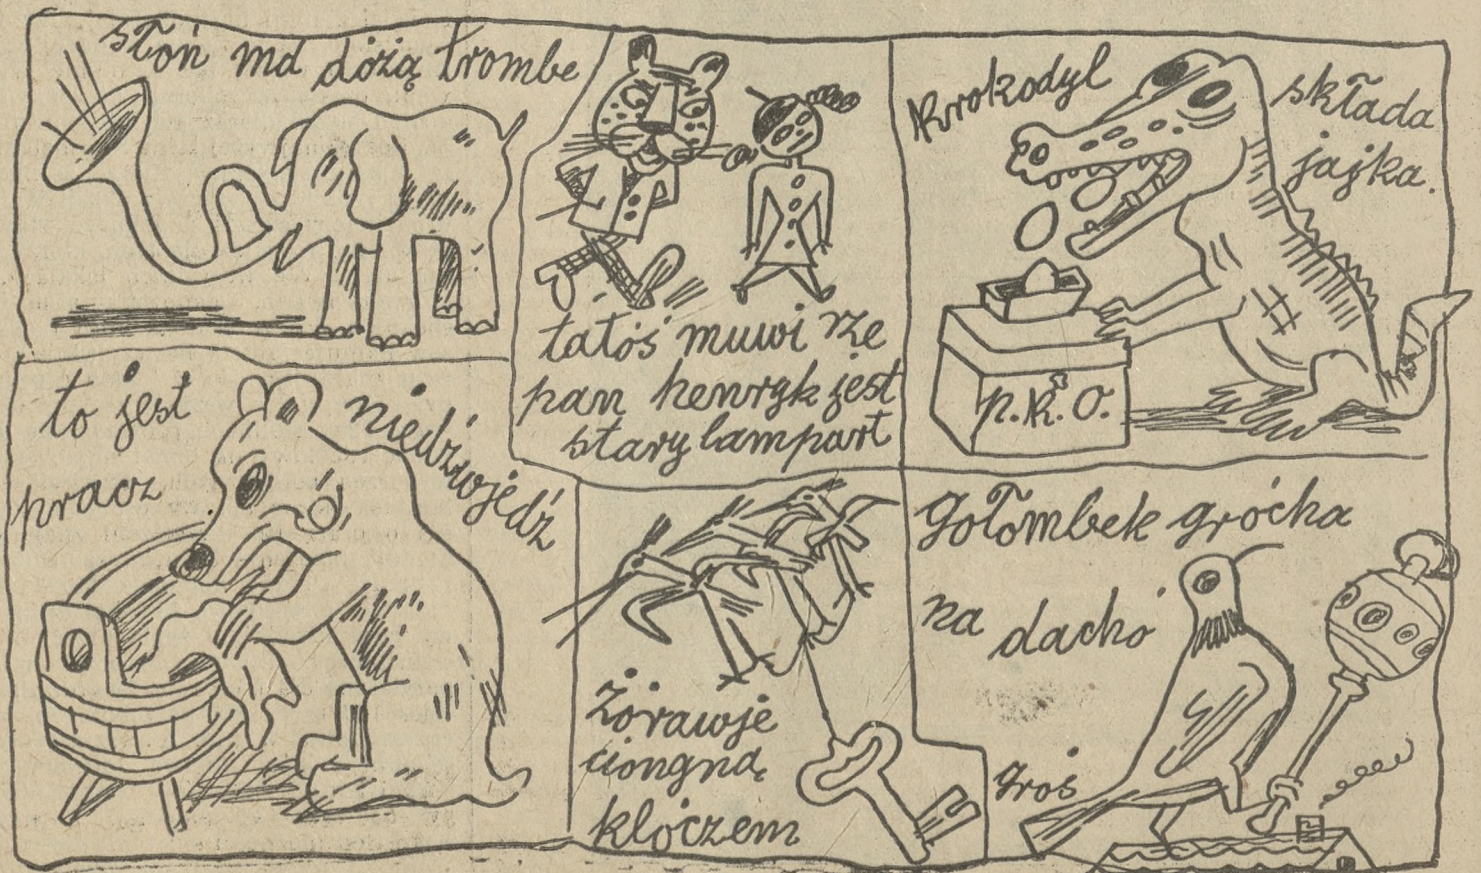 słoń md dóżą trombe
tatóś muwi rze
pan henryk jest
stary lampart
krokodyl
składa
jajka.
P.K.O.
to jest
pracz
niedźwjedź
żórawje
ciongną
klóczem
gołombek grócha
na dachó
groś